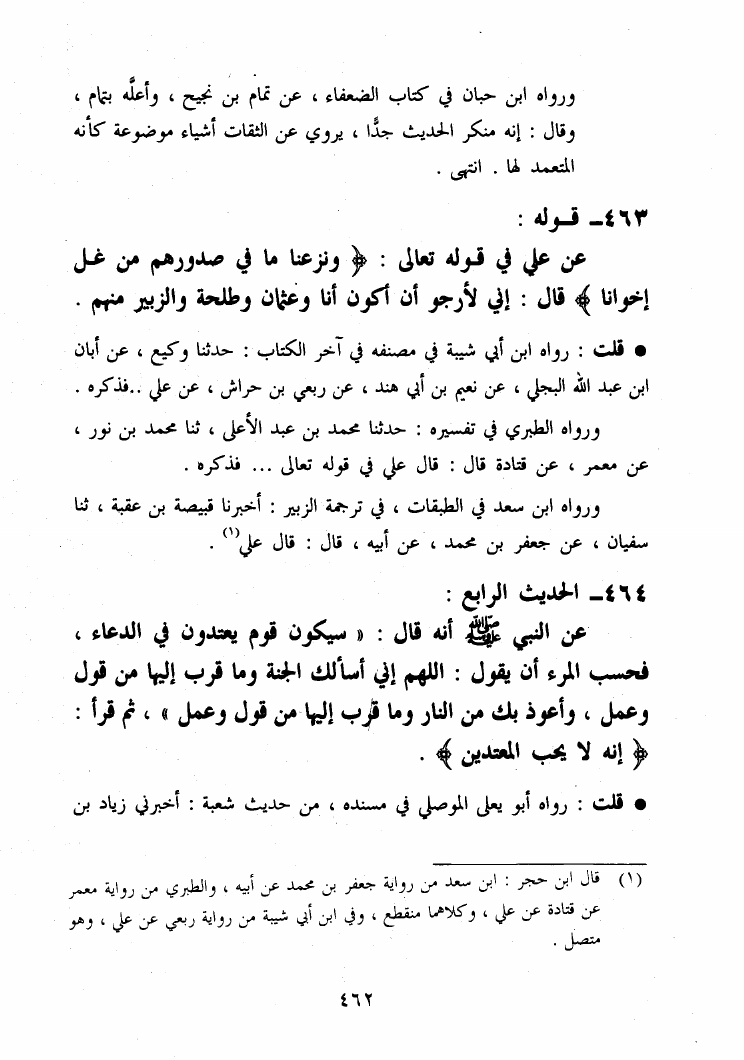 ورواه ابن حبان في كتاب الضعفاء ، عن تمام بن نجيح ، وأعلَّه بتمام ،
وقال : إنه منكر الحديث جدًّا ، يروي عن الثقات أشياء موضوعة كأنه
المتعمد لها . انتهى .
٤٦٣ـ قـولـه :
عن علي في قـوله تعالى : ﴿ ونزعنا ما في صدورهم من غـل
إخوانا ﴾ قال : إني لأرجو أن أكون أنا وعثمان وطلحة والزبير منهم .
● قلت : رواه ابن أبي شيبة في مصنفه في آخر الكتاب : حدثنا وكيع ، عن أبان
ابن عبد الله البجلي ، عن نعيم بن أبي هند ، عن ربعي بن حراش ، عن علي ..فذكره .
ورواه الطبري في تفسيره : حدثنا محمد بن عبد الأعلى ، ثنا محمد بن نور ،
عن معمر ، عن قتادة قال : قال علي في قوله تعالى ... فذكره .
ورواه ابن سعد في الطبقات ، في ترجمة الزبير : أخبرنا قبيصة بن عقبة ، ثنا
سفيان ، عن جعفر بن محمد ، عن أبيه ، قال : قال علي(١) .
٤٦٤ـ الحديث الرابع :
عن النبي ﷺ أنه قال : « سيكون قوم يعتدون في الدعاء ،
فحسب المرء أن يقول : اللهم إني أسألك الجنة وما قرب إليها من قول
وعمل ، وأعوذ بك من النار وما قرب إليها من قول وعمل » ، ثم قرأ :
﴿ إنه لا يحب المعتدين ﴾ .
● قلت : رواه أبو يعلى الموصلي في مسنده ، من حديث شعبة : أخبرني زياد بن
(١) قال ابن حجر : ابن سعد من رواية جعفر بن محمد عن أبيه ، والطبري من رواية معمر
عن قتادة عن علي ، وكلاهما منقطع ، وفي ابن أبي شيبة من رواية ربعي عن علي ، وهو
متصل .
٤٦٢